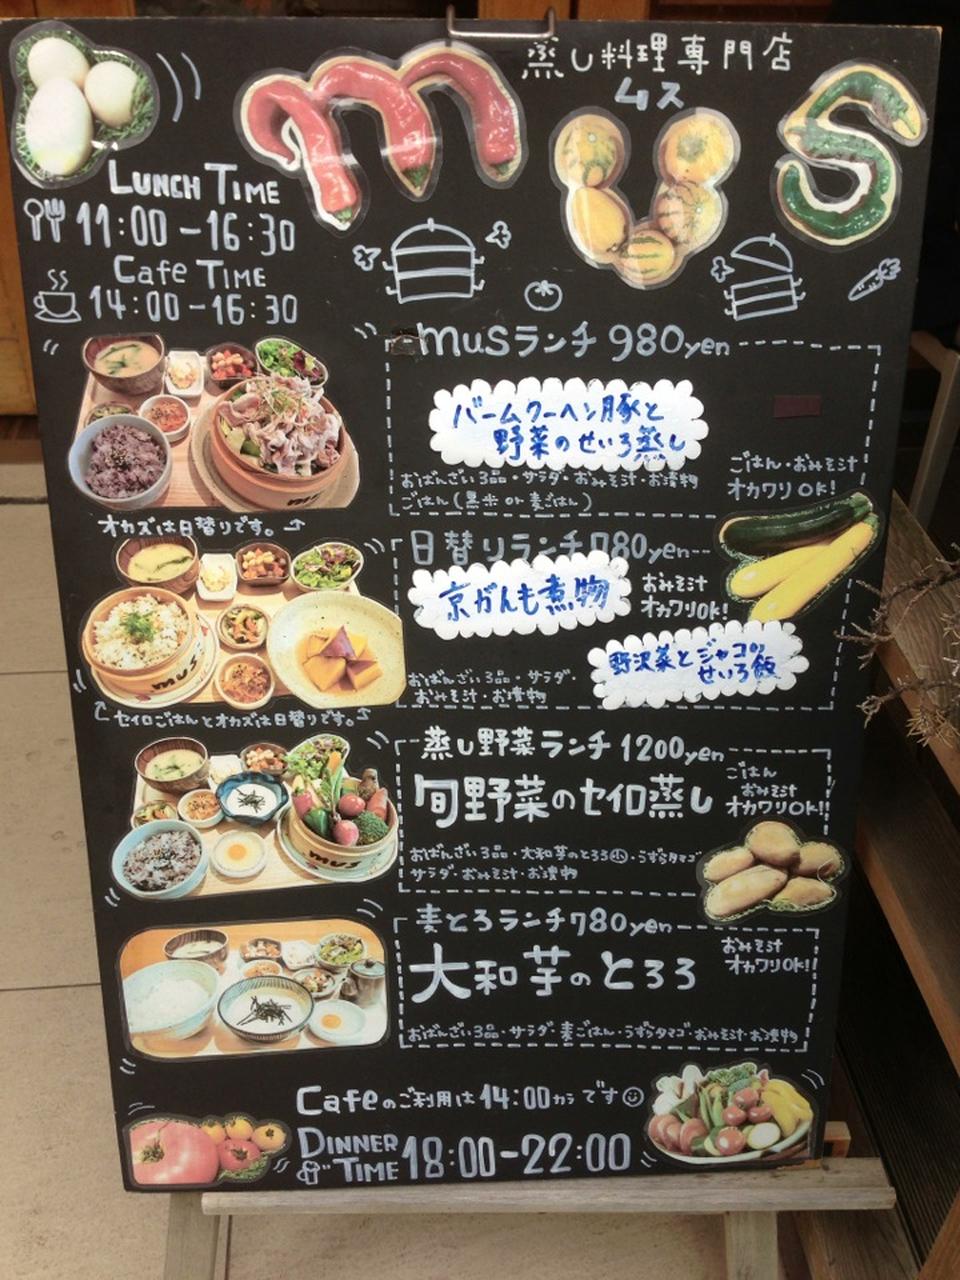 蒸し料理専門店
ムス
mus
LUNCH TIME
11:00-16:30
Cafe TIME
14:00-16:30
musランチ 980yen
バームクーヘン豚と
野菜のせいろ蒸し
おばんざい3品・サラダ・おみそ汁・お漬物
ごはん(黒米 or 麦ごはん)
ごはん・おみそ汁
オカワリOK!
オカズは日替りです。
日替りランチ 780yen
京がんも煮物
おみそ汁
オカワリOK!
野沢菜とジャコの
せいろ飯
おばんざい3品・サラダ・
おみそ汁・お漬物
セイロごはんとオカズは日替りです。
蒸し野菜ランチ 1200yen
旬野菜のセイロ蒸し
ごはん
おみそ汁
オカワリOK!!
おばんざい3品・大和芋のとろろ㊥・うずらタマゴ
サラダ・おみそ汁・お漬物
麦とろランチ780yen
大和芋のとろろ
おみそ汁
オカワリOK!
おばんざい3品・サラダ・麦ごはん・うずらタマゴ・おみそ汁・お漬物
Cafeのご利用は14:00カラです
DINNER
TIME 18:00-22:00